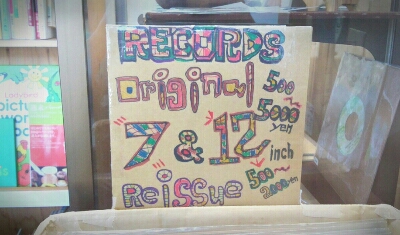 RECORDS
original 500~
5000
yen
7 & 12 inch
Reissue 500~
2000yen
picture
word